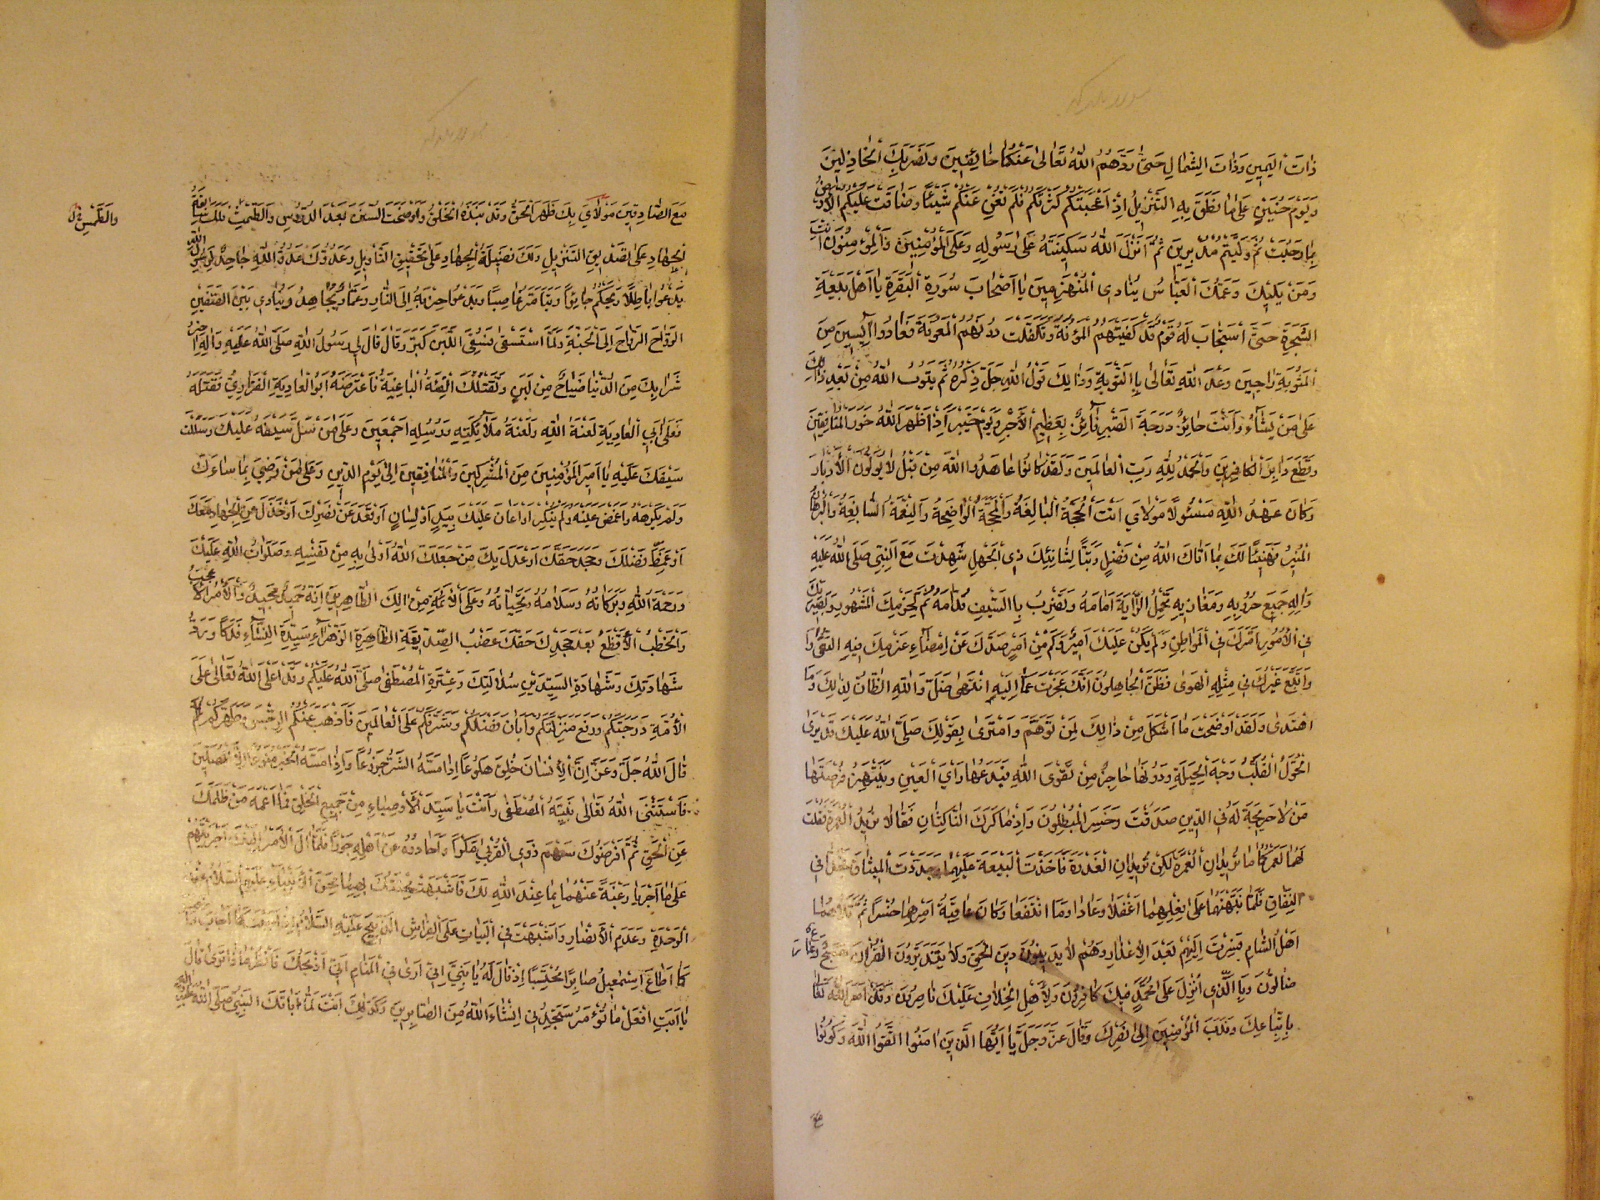 ذَاتَ الْيَمِينِ وَذَاتَ الشِّمَالِ حَتّٰى رَدَّهُمُ اللهُ تَعَالىٰ عَنْكُمَا خَائِفِينَ وَنَصَرَ بِكَ الْخَاذِلِينَ
وَيَوْمَ حُنَيْنٍ عَلىٰ مَا نَطَقَ بِهِ التَّنْزِيلُ اِذْ اَعْجَبَتْكُمْ كَثْرَتُكُمْ فَلَمْ تُغْنِ عَنْكُمْ شَيْئًا وَضَاقَتْ عَلَيْكُمُ الْاَرْضُ
بِمَا رَحُبَتْ ثُمَّ وَلَّيْتُمْ مُدْبِرِينَ ثُمَّ اَنْزَلَ اللهُ سَكِينَتَهُ عَلىٰ رَسُولِهِ وَعَلَى الْمُؤْمِنِينَ وَالْمُؤْمِنُونَ اَنْتَ
وَمَنْ يَلِيكَ وَعَمُّكَ الْعَبَّاسُ يُنَادِي الْمُنْهَزِمِينَ يَا اَصْحَابَ سُورَةِ الْبَقَرَةِ يَا اَهْلَ بَيْعَةِ
الشَّجَرَةِ حَتّٰى اسْتَجَابَ لَهُ قَوْمٌ قَدْ كَفَيْتَهُمُ الْمَؤُنَةَ وَتَكَفَّلْتَ دُونَهُمُ الْمَعُونَةَ فَعَادُوا آيِسِينَ مِنَ
الْمَثُوبَةِ رَاجِينَ وَعْدَ اللهِ تَعَالىٰ بِالتَّوْبَةِ وَذٰلِكَ قَوْلُ اللهِ جَلَّ ذِكْرُهُ ثُمَّ يَتُوبُ اللهُ مِنْ بَعْدِ ذٰلِكَ
عَلىٰ مَنْ يَشَاءُ وَاَنْتَ حَائِزٌ دَرَجَةَ الصَّبْرِ فَائِزٌ بِعَظِيمِ الْاَجْرِ وَيَوْمَ خَيْبَرَ اِذْ اَظْهَرَ اللهُ خَوَرَ الْمُنَافِقِينَ
وَقَطَعَ دَابِرَ الْكَافِرِينَ وَالْحَمْدُ لِلّٰهِ رَبِّ الْعَالَمِينَ وَلَقَدْ كَانُوا عَاهَدُوا اللهَ مِنْ قَبْلُ لَا يُوَلُّونَ الْاَدْبَارَ
وَكَانَ عَهْدُ اللهِ مَسْئُولًا مَوْلَايَ اَنْتَ الْحُجَّةُ الْبَالِغَةُ وَالْمَحَجَّةُ الْوَاضِحَةُ وَالنِّعْمَةُ السَّابِغَةُ وَالْبُرْهَانُ
الْمُنِيرُ فَهَنِيئًا لَكَ بِمَا آتَاكَ اللهُ مِنْ فَضْلٍ وَتَبًّا لِشَانِئِكَ ذِي الْجَهْلِ شَهِدْتَ مَعَ النَّبِيِّ صَلَّى اللهُ عَلَيْهِ
وَآلِهِ جَمِيعَ حُرُوبِهِ وَمَغَازِيهِ تَحْمِلُ الرَّايَةَ اَمَامَهُ وَتَضْرِبُ بِالسَّيْفِ قُدَّامَهُ ثُمَّ لِحَزْمِكَ الْمَشْهُورِ وَبَصِيرَتِكَ
فِي الْاُمُورِ اَمَّرَكَ فِي الْمَوَاطِنِ وَلَمْ يَكُنْ عَلَيْكَ اَمِيرٌ وَكَمْ مِنْ اَمْرٍ صَدَّكَ عَنْ اِمْضَاءِ عَزْمِكَ فِيهِ التُّقىٰ
وَاتَّبَعَ غَيْرُكَ فِي مِثْلِهِ الْهَوىٰ فَظَنَّ الْجَاهِلُونَ اَنَّكَ عَجَزْتَ عَمَّا اِلَيْهِ انْتَهىٰ ضَلَّ وَاللهِ الظَّانُّ لِذٰلِكَ وَمَا
اهْتَدىٰ وَلَقَدْ اَوْضَحْتَ مَا اَشْكَلَ مِنْ ذٰلِكَ لِمَنْ تَوَهَّمَ وَامْتَرىٰ بِقَوْلِكَ صَلَّى اللهُ عَلَيْكَ قَدْ يَرىٰ
الْحُوَّلُ الْقُلَّبُ وَجْهَ الْحِيلَةِ وَدُونَهَا حَاجِزٌ مِنْ تَقْوَى اللهِ فَيَدَعُهَا رَأْيَ الْعَيْنِ وَيَنْتَهِزُ فُرْصَتَهَا
مَنْ لَا حَرِيجَةَ لَهُ فِي الدِّينِ صَدَقْتَ وَخَسِرَ الْمُبْطِلُونَ وَاِذْ مَاكَرَكَ النَّاكِثَانِ فَقَالَا نُرِيدُ الْعُمْرَةَ فَقُلْتَ
لَهُمَا لَعَمْرُكُمَا مَا تُرِيدَانِ الْعُمْرَةَ لٰكِنْ تُرِيدَانِ الْغَدْرَةَ فَاَخَذْتَ الْبَيْعَةَ عَلَيْهِمَا وَجَدَّدْتَ الْمِيثَاقَ فَجَدَّا فِي
النِّفَاقِ فَلَمَّا نَبَّهْتَهُمَا عَلىٰ فِعْلِهِمَا اَغْفَلَا وَعَادَا وَمَا انْتَفَعَا وَكَانَ عَاقِبَةُ اَمْرِهِمَا خُسْرًا ثُمَّ تَلَاهُمَا
اَهْلُ الشَّامِ فَسِرْتَ اِلَيْهِمْ بَعْدَ الْاِعْذَارِ وَهُمْ لَا يَدِينُونَ دِينَ الْحَقِّ وَلَا يَتَدَبَّرُونَ الْقُرْآنَ هَمَجٌ رَعَاعٌ
ضَالُّونَ وَبِالَّذِي اُنْزِلَ عَلىٰ مُحَمَّدٍ فِيكَ كَافِرُونَ وَلِاَهْلِ الْخِلَافِ عَلَيْكَ نَاصِرُونَ وَقَدْ اَمَرَ اللهُ تَعَالىٰ
بِاتِّبَاعِكَ وَنَدَبَ الْمُؤْمِنِينَ اِلىٰ نَصْرِكَ وَقَالَ عَزَّ وَجَلَّ يَا اَيُّهَا الَّذِينَ آمَنُوا اتَّقُوا اللهَ وَكُونُوا
مَعَ الصَّادِقِينَ مَوْلَايَ بِكَ ظَهَرَ الْحَقُّ وَقَدْ نَبَذَهُ الْخَلْقُ وَاَوْضَحْتَ السُّنَنَ بَعْدَ الدُّرُوسِ وَالطَّمْسِ فَلَكَ سَابِقَةُ
الْجِهَادِ عَلىٰ تَصْدِيقِ التَّنْزِيلِ وَلَكَ فَضِيلَةُ الْجِهَادِ عَلىٰ تَحْقِيقِ التَّأْوِيلِ وَعَدُوُّكَ عَدُوُّ اللهِ جَاحِدٌ لِرَسُولِ اللهِ
يَدْعُو بَاطِلًا وَيَحْكُمُ جَائِرًا وَيَتَاَمَّرُ غَاصِبًا وَيَدْعُو حِزْبَهُ اِلَى النَّارِ وَعَمَّارٌ يُجَاهِدُ وَيُنَادِي بَيْنَ الصَّفَّيْنِ
الرَّوَاحَ الرَّوَاحَ اِلَى الْجَنَّةِ وَلَمَّا اسْتَسْقىٰ فَسُقِيَ اللَّبَنَ كَبَّرَ وَقَالَ قَالَ لِي رَسُولُ اللهِ صَلَّى اللهُ عَلَيْهِ وَآلِهِ آخِرُ
شَرَابِكَ مِنَ الدُّنْيَا ضَيَاحٌ مِنْ لَبَنٍ وَتَقْتُلُكَ الْفِئَةُ الْبَاغِيَةُ فَاعْتَرَضَهُ اَبُو الْعَادِيَةِ الْفَزَارِيُّ فَقَتَلَهُ
فَعَلىٰ اَبِي الْعَادِيَةِ لَعْنَةُ اللهِ وَلَعْنَةُ مَلَائِكَتِهِ وَرُسُلِهِ اَجْمَعِينَ وَعَلىٰ مَنْ سَلَّ سَيْفَهُ عَلَيْكَ وَسَلَلْتَ
سَيْفَكَ عَلَيْهِ يَا اَمِيرَ الْمُؤْمِنِينَ مِنَ الْمُشْرِكِينَ وَالْمُنَافِقِينَ اِلىٰ يَوْمِ الدِّينِ وَعَلىٰ مَنْ رَضِيَ بِمَا سَاءَكَ
وَلَمْ يَكْرَهْهُ وَاَغْمَضَ عَيْنَهُ وَلَمْ يُنْكِرْ اَوْ اَعَانَ عَلَيْكَ بِيَدٍ اَوْ لِسَانٍ اَوْ قَعَدَ عَنْ نَصْرِكَ اَوْ خَذَلَ عَنِ الْجِهَادِ مَعَكَ
اَوْ غَمَطَ فَضْلَكَ وَجَحَدَ حَقَّكَ اَوْ عَدَلَ بِكَ مَنْ جَعَلَكَ اللهُ اَوْلىٰ بِهِ مِنْ نَفْسِهِ وَصَلَوَاتُ اللهِ عَلَيْكَ
وَرَحْمَةُ اللهِ وَبَرَكَاتُهُ وَسَلَامُهُ وَتَحِيَّاتُهُ وَعَلَى الْاَئِمَّةِ مِنْ آلِكَ الطَّاهِرِينَ اِنَّهُ حَمِيدٌ مَجِيدٌ وَالْاَمْرُ الْاَعْجَبُ
وَالْخَطْبُ الْاَفْظَعُ بَعْدَ جَحْدِكَ حَقَّكَ غَصْبُ الصِّدِّيقَةِ الطَّاهِرَةِ الزَّهْرَاءِ سَيِّدَةِ النِّسَاءِ فَدَكًا وَرَدُّ
شَهَادَتِكَ وَشَهَادَةِ السَّيِّدَيْنِ سُلَالَتِكَ وَعِتْرَةِ الْمُصْطَفىٰ صَلَّى اللهُ عَلَيْكُمْ وَقَدْ اَعْلَى اللهُ تَعَالىٰ عَلَى
الْاُمَّةِ دَرَجَتَكُمْ وَرَفَعَ مَنْزِلَتَكُمْ وَاَبَانَ فَضْلَكُمْ وَشَرَّفَكُمْ عَلَى الْعَالَمِينَ فَاَذْهَبَ عَنْكُمُ الرِّجْسَ وَطَهَّرَكُمْ
قَالَ اللهُ جَلَّ وَعَزَّ اِنَّ الْاِنْسَانَ خُلِقَ هَلُوعًا اِذَا مَسَّهُ الشَّرُّ جَزُوعًا وَاِذَا مَسَّهُ الْخَيْرُ مَنُوعًا اِلَّا الْمُصَلِّينَ
فَاسْتَثْنَى اللهُ تَعَالىٰ نَبِيَّهُ الْمُصْطَفىٰ وَاَنْتَ يَا سَيِّدَ الْاَوْصِيَاءِ مِنْ جَمِيعِ الْخَلْقِ فَمَا اَعْمَهَ مَنْ ظَلَمَكَ
عَنِ الْحَقِّ ثُمَّ اَفْرَضُوكَ سَهْمَ ذَوِي الْقُرْبىٰ مَكْرًا وَاَحَادُوهُ عَنْ اَهْلِهِ جَوْرًا فَلَمَّا آلَ الْاَمْرُ اِلَيْكَ اَجْرَيْتَهُمْ
عَلىٰ مَا اَجْرَيَا رَغْبَةً عَنْهُمَا بِمَا عِنْدَ اللهِ لَكَ فَاَشْبَهَتْ مِحْنَتُكَ بِهِمَا مِحَنَ الْاَنْبِيَاءِ عَلَيْهِمُ السَّلَامُ عِنْدَ
الْوَحْدَةِ وَعَدَمِ الْاَنْصَارِ وَاَشْبَهْتَ فِي الْبَيَاتِ عَلَى الْفِرَاشِ الذَّبِيحَ عَلَيْهِ السَّلَامُ اِذْ اَجَبْتَ كَمَا اَجَابَ
كَمَا اَطَاعَ اِسْمٰعِيلُ صَابِرًا مُحْتَسِبًا اِذْ قَالَ لَهُ يَا بُنَيَّ اِنِّي اَرىٰ فِي الْمَنَامِ اَنِّي اَذْبَحُكَ فَانْظُرْ مَاذَا تَرىٰ قَالَ
يَا اَبَتِ افْعَلْ مَا تُؤْمَرُ سَتَجِدُنِي اِنْ شَاءَ اللهُ مِنَ الصَّابِرِينَ وَكَذٰلِكَ اَنْتَ لَمَّا اَبَاتَكَ النَّبِيُّ صَلَّى اللهُ عَلَيْهِ وَآلِهِ
وَالطَّمْسِ